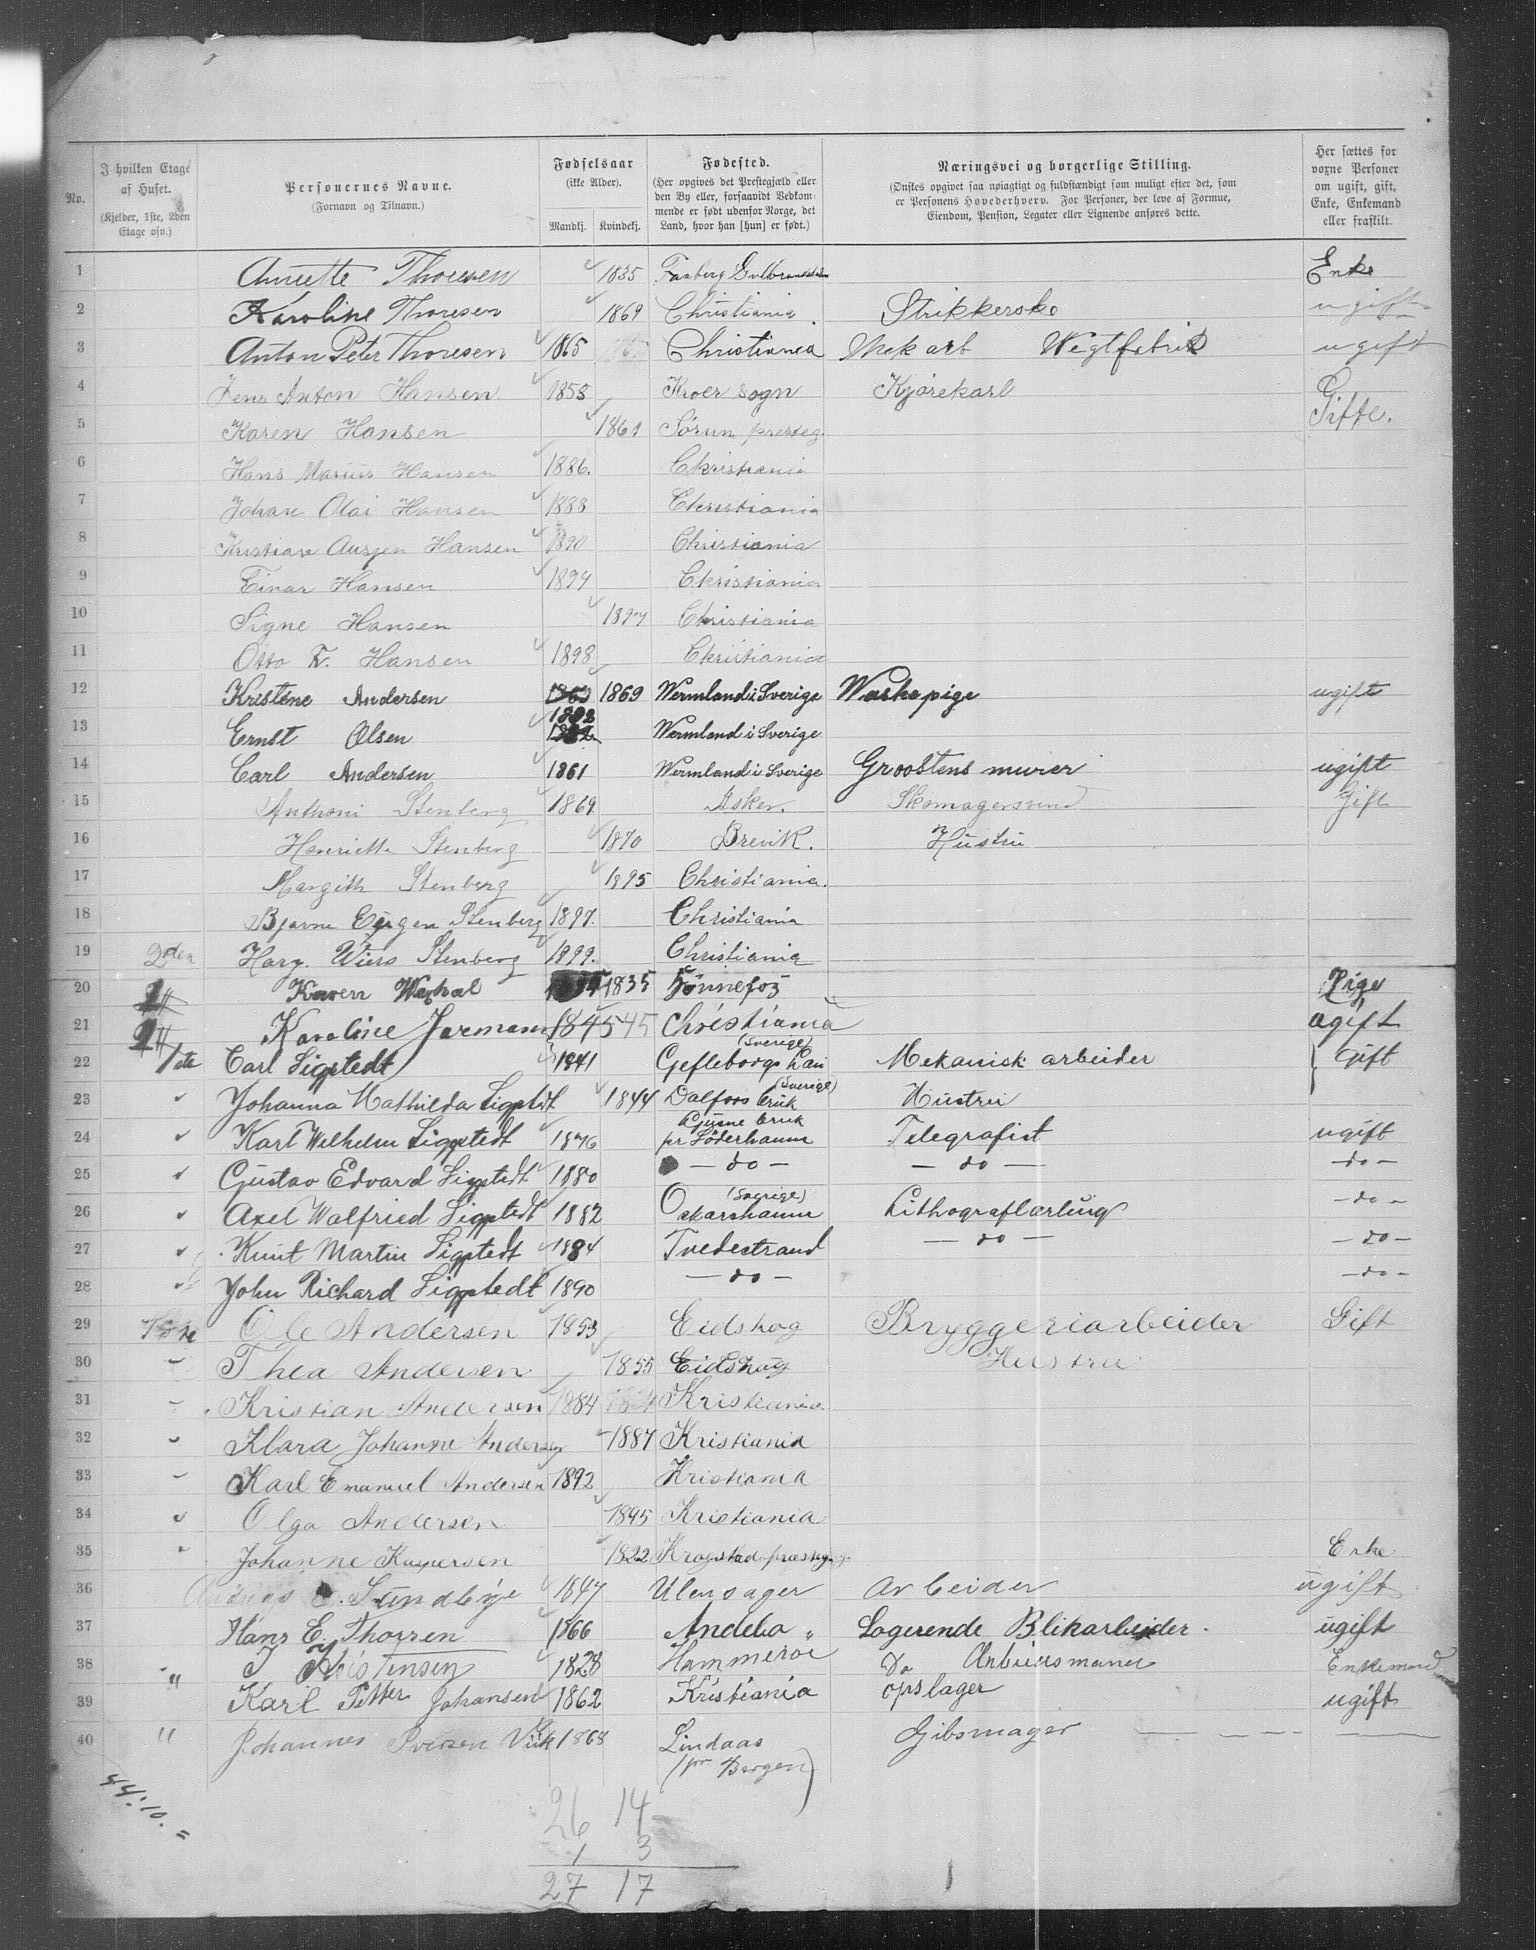 No. | I hvilken Etage af Huset. (Kjelder, 1ste, 2den Etage osv.) | Personernes Navne. (Fornavn og Tilnavn.) | Fødselsaar (ikke Alder). Mandkj. Kvindekj. | Fødested. (Her opgives det Prestegjæld eller den By eller, forsaavidt Vedkommende er født udenfor Norge, det Land, hvor han [hun] er født.) | Næringsvei og borgerlige Stilling. (Ønskes opgivet saa nøiagtigt og fuldstændigt som muligt efter det, som er Personens Hovederhverv. For Personer, der leve af Formue, Eiendom, Pension, Legater eller Lignende anføres dette. | Her sættes for voxne Personer om ugift, gift, Enke, Enkemand eller fraskilt.
1 Annette Thoresen 1835 Faaberg Gulbrandsdalen Enke
2 Karoline Thoresen 1869 Christiania. Strikkerske ugift
3 Anton Peter Thoresen 1865 Christiania Mek arb Vegtfabrik ugift
4 Jens Anton Hansen 1853 Kroer sogn Kjørekarl G
5 Karen Hansen 1861 Sørum presteg. Gifte.
6 Hans Marius Hansen 1886. Christiania
7 Johan Olai Hansen 1888 Christiania
8 Kristian Hansen 1890 Christiania
9 Einar Hansen 1894 Christiania
10 Signe Hansen 1897 Christiania
11 Otto F. Hansen 1898 Christiania
12 Kristine Andersen 1869 Wermland i Sverige Waskepige ugift
13 Ernst Olsen Wermland i Sverige
14 Carl Andersen 1861 Wermland i Sverige Groostens murer ugift
15 Anthoni Stenberg 1869 Asker. Skomagersvend Gift
16 Henriette Stenberg 1870 Brevik. Hustru
17 Margith Stenberg 1895 Christiania.
18 Bjarne Eugen Stenberg 1897. Christiania
19 2den Hary. Stenberg 1899. Christiania
20 Karen 1835 Hønnefos Pige
21 Karoline Jormann 1845 45 Christiania ugift
22 1ste Carl Ligstedt 1841 Gefleborgs Län (Sverige) Mekanisk arbeider } Gift
23 " Johanna Mathilda Ligstedt 1844 Dalfors bruk (Sverige) Hustru
24 " Karl Wilhelm Ligstedt 1876 Ljusne bruk pr Söderhamn Telegrafist ugift
25 " Gustav Edvard Ligstedt 1880 — do — — do — — do —
26 " Axel Walfried Ligstedt 1882 Oskarshamn (Sverige) Lithograflærling — do —
27 " Knut Martin Ligstedt 1884 Tvedestrand — do — — do —
28 " John Richard Ligstedt 1890 — do — — do —
29 1ste Ole Andersen 1853 Eidskog Bryggeriarbeider Gift
30 " Thea Andersen 1855 Eidskog Hustru
31 " Kristian Andersen 1884 Kristiania
32 " Klara Johanne Andersen 1887 Kristiania
33 " Karl Emanuel Andersen 1892 Kristiania
34 " Olga Andersen 1895 Kristiania
35 " Johanne Kaspersen 1822 Kragstad præstegj. Enke
36 Andreas Sundbye 1847 Ulensager Arbeider ugift
37 Hans E. Thorsen 1866 Andebo " Logerende Blikarbeider. ugift
38 " J Kristensen 1828 Hammerøe Do Arbeidsmand Enkemand
39 Karl Petter Johansen 1862 Kristiania opslager ugift
40 " Johannes Iversen Viik 1868 Lindaas (pr Bergen) Gibsmager — — —
44:10. =
26 14
1 3
27 17